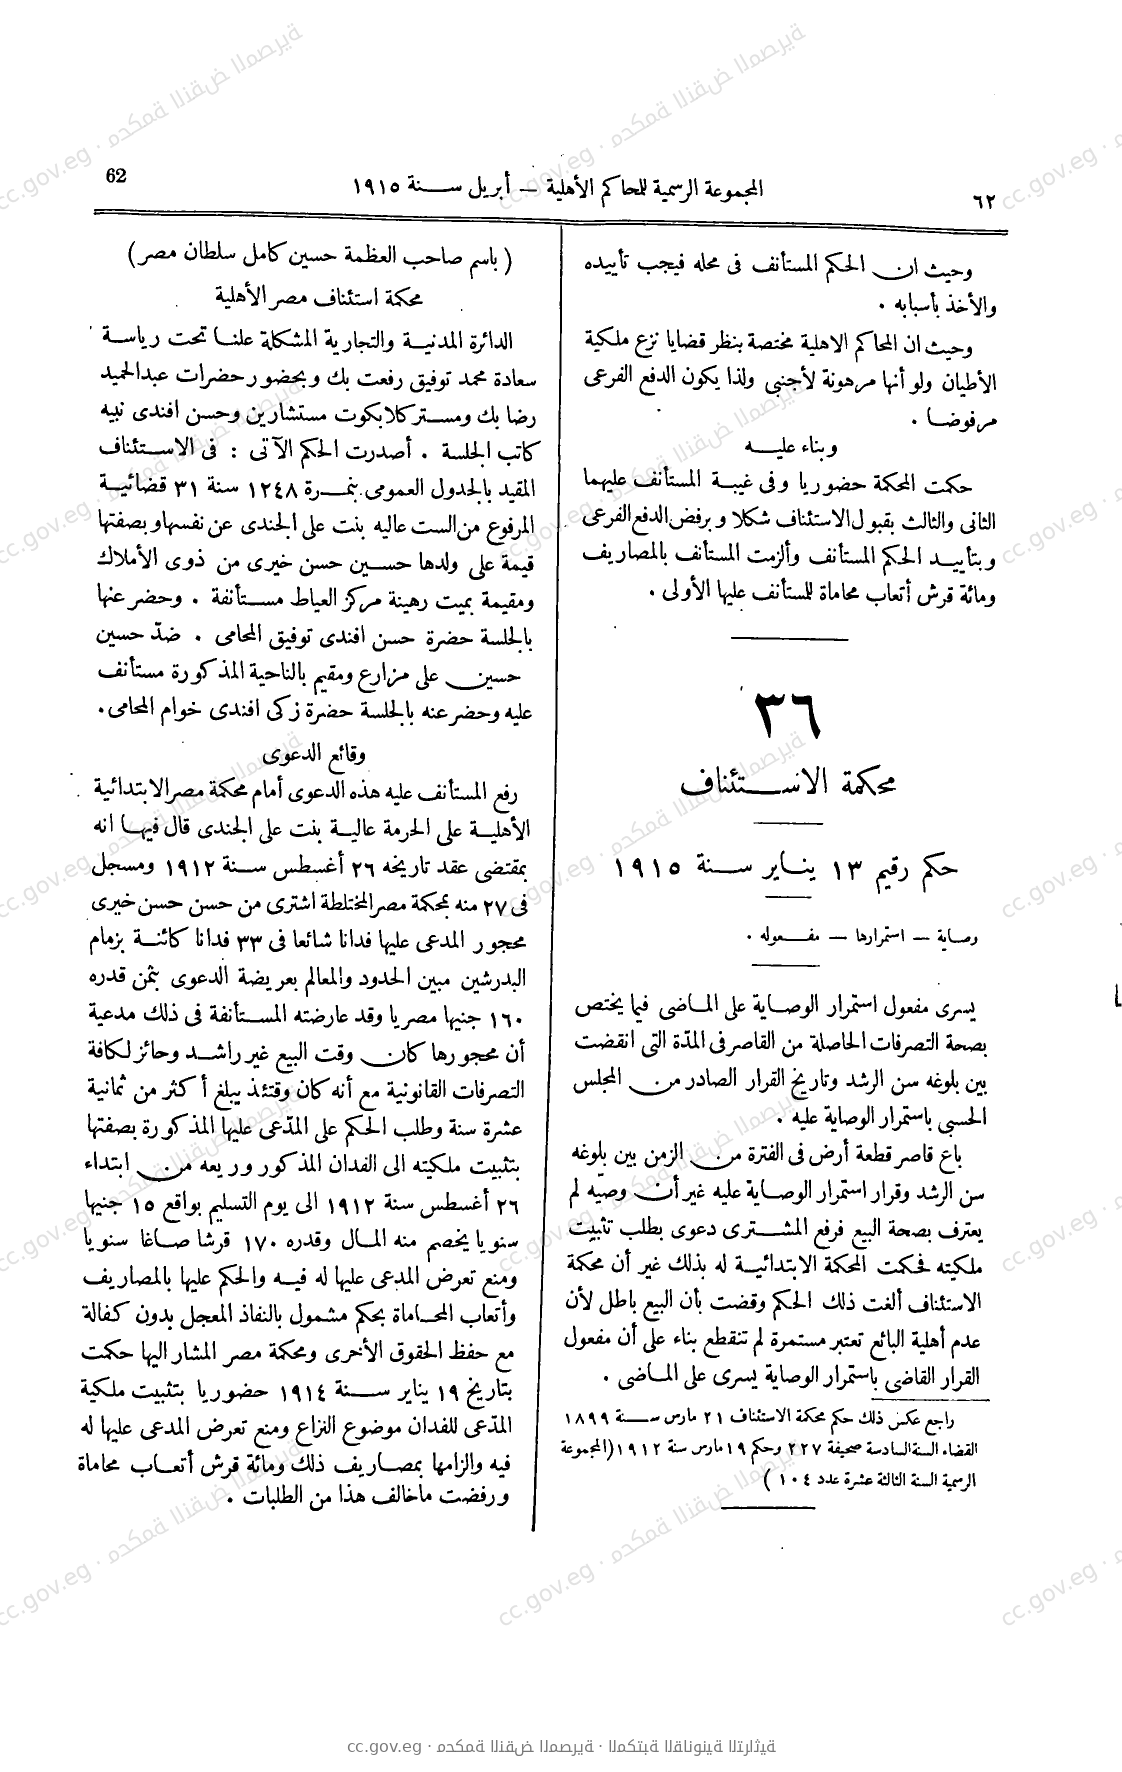 62
المجموعة الرسمية للمحاكم الأهلية — أبريل سنة ١٩١٥
٦٢
وحيث ان الحكم المستأنف فى محله فيجب تأييده
والأخذ بأسبابه .
وحيث ان المحاكم الاهلية مختصة بنظر قضايا نزع ملكية
الأطيان ولو أنها مرهونة لأجنبى ولذا يكون الدفع الفرعى
مرفوضا .
وبناء عليه
حكمت المحكمة حضوريا وفى غيبة المستأنف عليهما
الثانى والثالث بقبول الاستئناف شكلا وبرفض الدفع الفرعى
وبتأييد الحكم المستأنف وألزمت المستأنف بالمصاريف
ومائة قرش أتعاب محاماة للمستأنف عليها الأولى .
٣٦
محكمة الاستئناف
حكم رقيم ١٣ يناير سنة ١٩١٥
وصاية — استمرارها — مفعوله .
يسرى مفعول استمرار الوصاية على الماضى فيما يختص
بصحة التصرفات الحاصلة من القاصر فى المدّة التى انقضت
بين بلوغه سن الرشد وتاريخ القرار الصادر من المجلس
الحسبى باستمرار الوصاية عليه .
باع قاصر قطعة أرض فى الفترة من الزمن بين بلوغه
سن الرشد وقرار استمرار الوصاية عليه غير أن وصيّه لم
يعترف بصحة البيع فرفع المشترى دعوى بطلب تثبيت
ملكيته فحكمت المحكمة الابتدائية له بذلك غير أن محكمة
الاستئناف ألغت ذلك الحكم وقضت بأن البيع باطل لأن
عدم أهلية البائع تعتبر مستمرة لم تنقطع بناء على أن مفعول
القرار القاضى باستمرار الوصاية يسرى على الماضى .
راجع عكس ذلك حكم محكمة الاستئناف ٢١ مارس سنة ١٨٩٩
القضاء السنة السادسة صحيفة ٢٢٧ وحكم ١٩ مارس سنة ١٩١٢ (المجموعة
الرسمية السنة الثالثة عشرة عدد ١٠٤ )
( باسم صاحب العظمة حسين كامل سلطان مصر )
محكمة استئناف مصر الأهلية
الدائرة المدنية والتجارية المشكلة علنا تحت رياسة
سعادة محمد توفيق رفعت بك وبحضور حضرات عبد الحميد
رضا بك ومستر كلايكوت مستشارين وحسن افندى نبيه
كاتب الجلسة . أصدرت الحكم الآتى : فى الاستئناف
المقيد بالجدول العمومى بنمرة ١٢٤٨ سنة ٣١ قضائية
المرفوع من الست عاليه بنت على الجندى عن نفسها وبصفتها
قيمة على ولدها حسين حسن خيرى من ذوى الأملاك
ومقيمة بميت رهينة مركز العياط مستأنفة . وحضر عنها
بالجلسة حضرة حسن افندى توفيق المحامى . ضدّ حسين
حسين على مزارع ومقيم بالناحية المذكورة مستأنف
عليه وحضر عنه بالجلسة حضرة زكى افندى خوام المحامى .
وقائع الدعوى
رفع المستأنف عليه هذه الدعوى أمام محكمة مصر الابتدائية
الأهلية على الحرمة عالية بنت على الجندى قال فيها انه
بمقتضى عقد تاريخه ٢٦ أغسطس سنة ١٩١٢ ومسجل
فى ٢٧ منه بمحكمة مصر المختلطة اشترى من حسن حسن خيرى
محجور المدعى عليها فدانا شائعا فى ٣٣ فدانا كائنة بزمام
البدرشين مبين الحدود والمعالم بعريضة الدعوى بثمن قدره
١٦٠ جنيها مصريا وقد عارضته المستأنفة فى ذلك مدعية
أن محجورها كان وقت البيع غير راشد وحائز لكافة
التصرفات القانونية مع أنه كان وقتئذ يبلغ أكثر من ثمانية
عشرة سنة وطلب الحكم على المدّعى عليها المذكورة بصفتها
بتثبيت ملكيته الى الفدان المذكور وريعه من ابتداء
٢٦ أغسطس سنة ١٩١٢ الى يوم التسليم بواقع ١٥ جنيها
سنويا يخصم منه المال وقدره ١٧٠ قرشا صاغا سنويا
ومنع تعرض المدعى عليها له فيه والحكم عليها بالمصاريف
وأتعاب المحاماة بحكم مشمول بالنفاذ المعجل بدون كفالة
مع حفظ الحقوق الأخرى ومحكمة مصر المشار اليها حكمت
بتاريخ ١٩ يناير سنة ١٩١٤ حضوريا بتثبيت ملكية
المدّعى للفدان موضوع النزاع ومنع تعرض المدعى عليها له
فيه والزامها بمصاريف ذلك ومائة قرش أتعاب محاماة
ورفضت ماخالف هذا من الطلبات .
cc.gov.eg · محكمة النقض المصرية · المكتبة القانونية التراثية